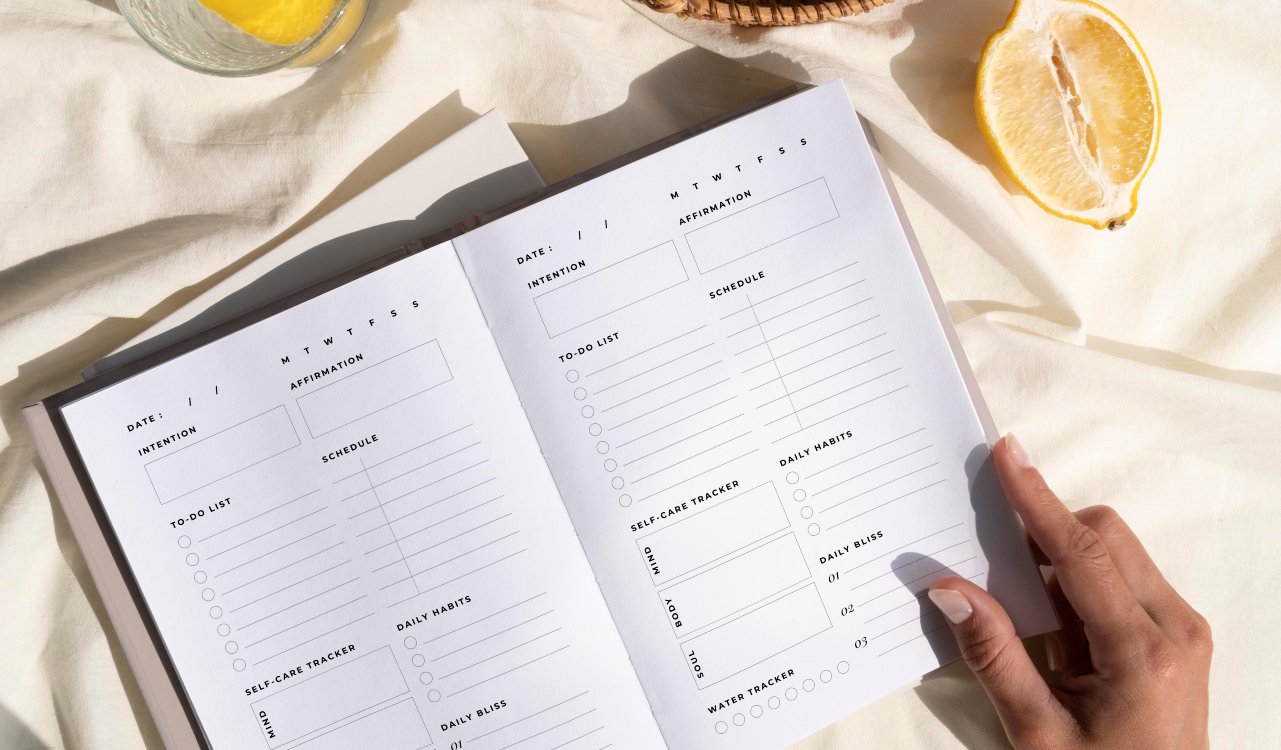 DATE: / / M T W T F S S
INTENTION AFFIRMATION
TO-DO LIST SCHEDULE
SELF-CARE TRACKER DAILY HABITS
MIND
DAILY BLISS
01
DATE: / / M T W T F S S
INTENTION AFFIRMATION
TO-DO LIST SCHEDULE
SELF-CARE TRACKER DAILY HABITS
MIND
BODY
SOUL
DAILY BLISS
01
02
03
WATER TRACKER